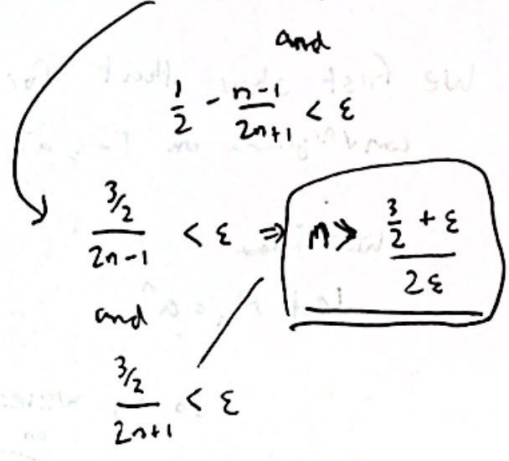 and
1/2 - (n-1)/(2n+1) < ε
(3/2)/(2n-1) < ε ⇒ n > (3/2 + ε)/(2ε)
and
(3/2)/(2n+1) < ε